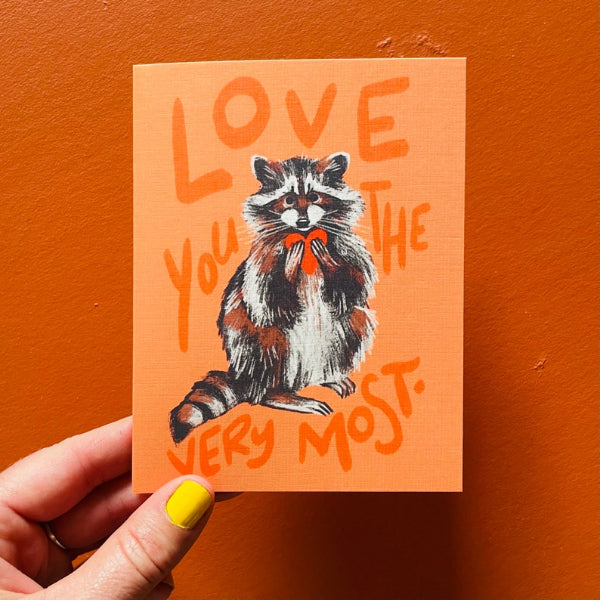 LOVE
YOU THE
VERY MOST.